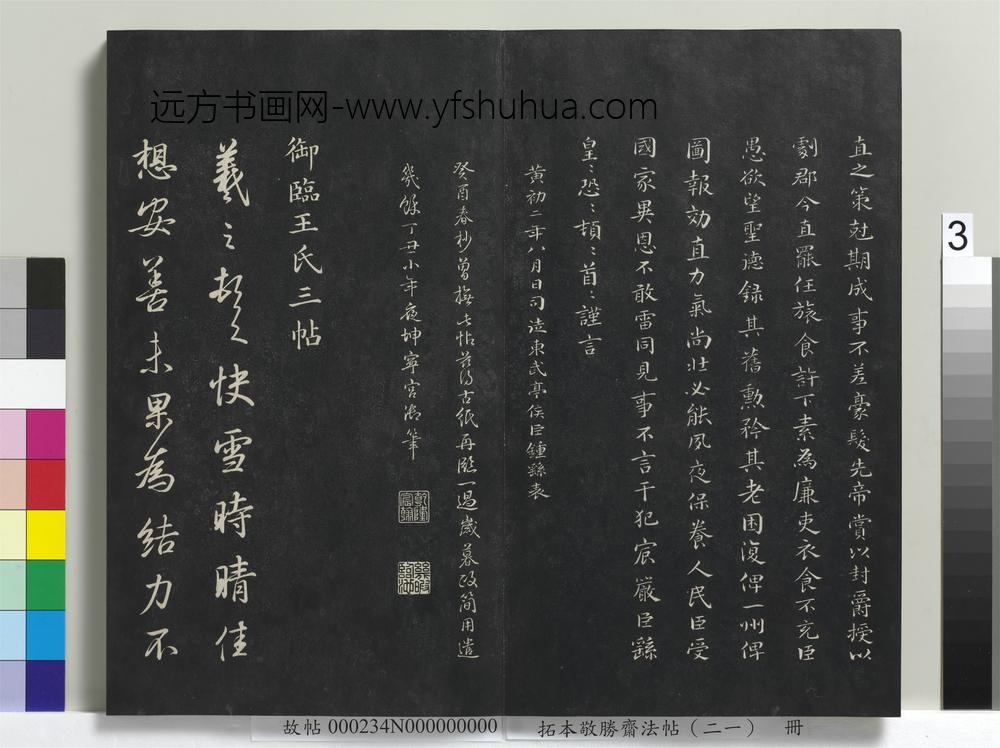 远方书画网-www.yfshuhua.com
直之策尅期成事不差豪髮先帝賞以封爵授以
劇郡今直罷任旅食許下素為廉吏衣食不充臣
愚欲望聖德錄其舊勳矜其老困復俾一州俾
圖報効直力氣尚壯必能夙夜保養人民臣受
國家異恩不敢雷同見事不言干犯宸嚴臣繇
皇〻恐〻頓〻首〻謹言
黃初二年八月日司徒東武亭侯臣鍾繇表
癸酉春杪曾撫此帖茲得古紙再臨一過歲暮政簡用遣
幾餘丁丑小年夜坤寧宮御筆
乾隆宸翰
御臨王氏三帖
羲之頓首快雪時晴佳
想安善未果為結力不
3
故帖 000234N000000000
拓本敬勝齋法帖（二一） 冊